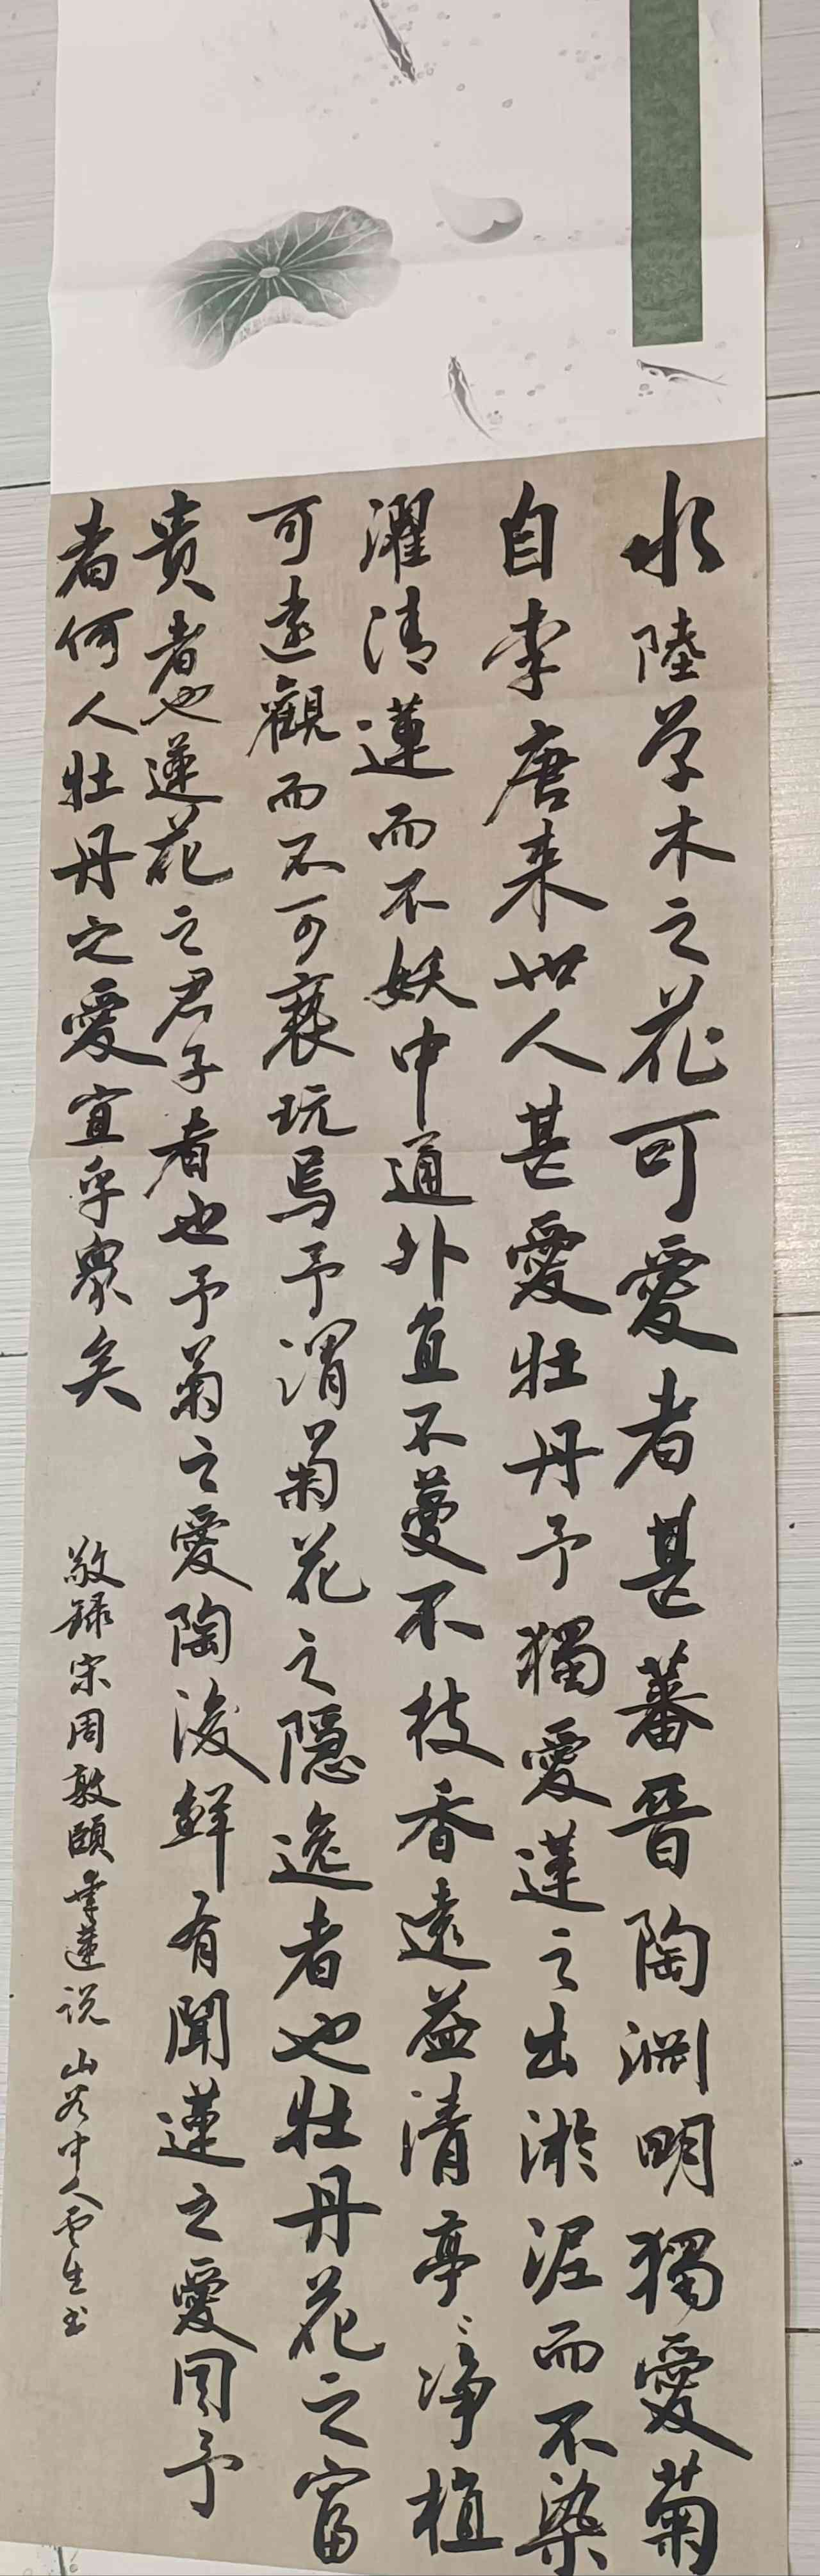 水陸草木之花可愛者甚蕃晉陶淵明獨愛菊
自李唐来世人甚愛牡丹予獨愛蓮之出淤泥而不染
濯清蓮而不妖中通外直不蔓不枝香遠益清亭〻净植
可遠觀而不可褻玩焉予謂菊花之隱逸者也牡丹花之富
貴者也蓮花之君子者也予菊之愛陶後鮮有聞蓮之愛同予
者何人牡丹之愛宜乎眾矣
敬録宋周敦頤愛蓮說 山谷中人雲生书